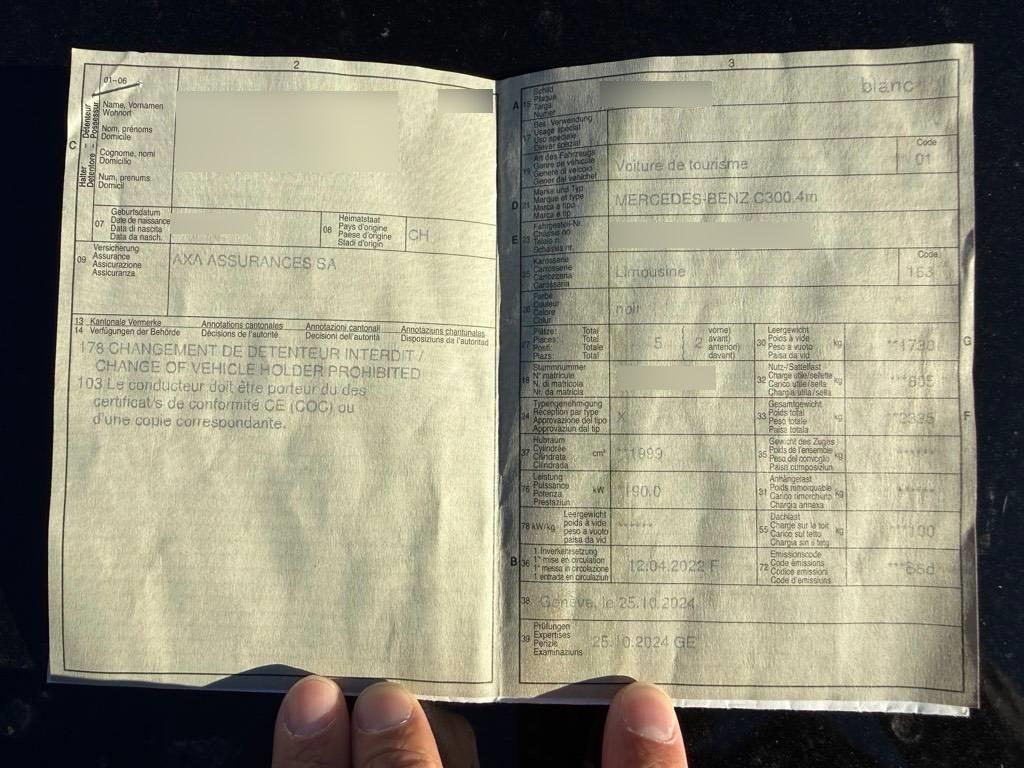 2
01–06
C
Halter Détenteur
Detentore Possessur
Name, Vornamen
Wohnort
Nom, prénoms
Domicile
Cognome, nomi
Domicilio
Num, prenums
Domicil
07 Geburtsdatum
Date de naissance
Data di nascita
Data da nasch.
08 Heimatstaat
Pays d'origine
Paese d'origine
Stadi d'origin
CH
09 Versicherung
Assurance
Assicurazione
Assicuranza
AXA ASSURANCES SA
13 Kantonale Vermerke Annotations cantonales Annotazioni cantonali Annotaziuns chantunalas
14 Verfügungen der Behörde Décisions de l'autorité Decisioni dell'autorità Disposiziuns da l'autoritad
178 CHANGEMENT DE DETENTEUR INTERDIT /
CHANGE OF VEHICLE HOLDER PROHIBITED
103 Le conducteur doit être porteur du des
certificat/s de conformité CE (COC) ou
d'une copie correspondante.
3
A 15 Schild
Plaque
Targa
Numer
blanc
17 Bes. Verwendung
Usage spécial
Uso speciale
Diever spezial
19 Art des Fahrzeugs
Genre de véhicule
Genere di veicolo
Gener dal vehichel
Voiture de tourisme
Code
01
D 21 Marke und Typ
Marque et type
Marca e tipo
Marca e tip
MERCEDES-BENZ C300 4m
E 23 Fahrgestell-Nr.
Châssis no
Telaio n.
Schassis nr.
25 Karosserie
Carrosserie
Carrozzeria
Carossaria
Limousine
Code
163
26 Farbe
Couleur
Colore
Colur
noir
27 Plätze: Total
Places: Total
Posti: Totale
Plazs: Total
5 ( 2 vorne)
avant)
antendo)
davant)
30 Leergewicht
Poids à vide
Peso a vuoto
Paisa da vid
kg
**1730
G
18 Stammnummer
N° matricule
N. di matricola
Nr. da matricla
32 Nutz-/Sattellast
Charge utile/sellette
Carico utile/sella
Chargia utila/sella
kg
***605
24 Typengenehmigung
Réception par type
Approvazione del tipo
Approvaziun dal tip
X
33 Gesamtgewicht
Poids total
Peso totale
Paisa totala
kg
**2335
F
37 Hubraum
Cylindrée
Cilindrata
Cilindrada
cm³
*1999
35 Gewicht des Zuges
Poids de l'ensemble
Peso del convoglio
Paisa cumposiziun
kg
******
76 Leistung
Puissance
Potenza
Prestaziun
kW
*190.0
31 Anhängelast
Poids remorquable
Carico rimorchiato
Chargia annexa
kg
******
78 kW/kg Leergewicht
poids à vide
peso a vuoto
paisa da vid
*****
55 Dachlast
Charge sur le toit
Carico sul tetto
Chargia sin il tetg
kg
***100
B 36 1. Inverkehrsetzung
1re mise en circulation
1a messa in circolazione
1. entrada en circulaziun
12.04.2022 F
72 Emissionscode
Code émissions
Codice emissioni
Code d'emissiuns
***B6d
38 Genève, le 25.10.2024
39 Prüfungen
Expertises
Perizie
Examinaziuns
25.10.2024 GE